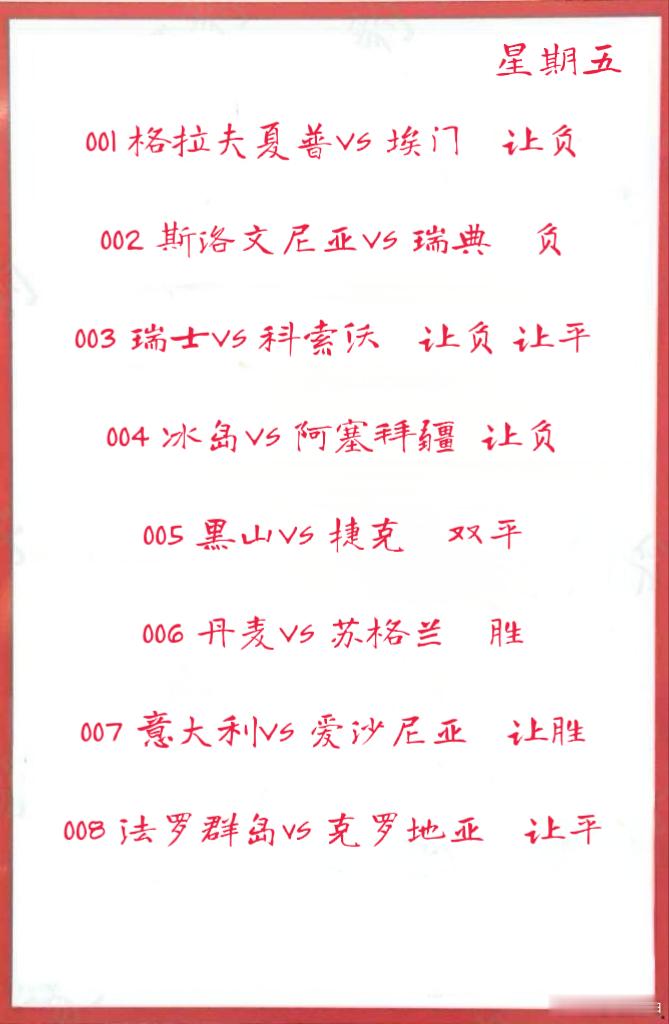 星期五
001 格拉夫夏普vs 埃门 让负
002 斯洛文尼亚vs 瑞典 负
003 瑞士vs 科索沃 让负 让平
004 冰岛vs 阿塞拜疆 让负
005 黑山vs 捷克 双平
006 丹麦vs 苏格兰 胜
007 意大利vs 爱沙尼亚 让胜
008 法罗群岛vs 克罗地亚 让平